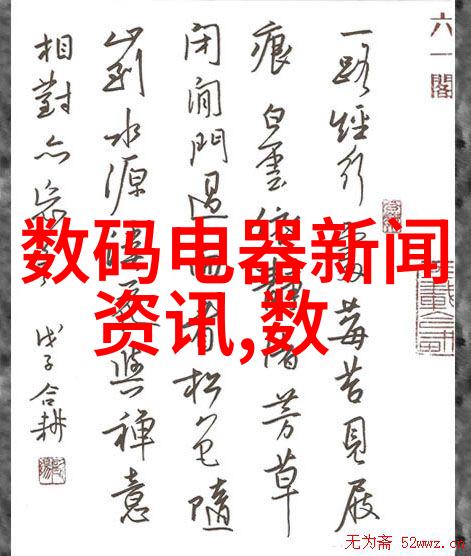 六一閣
一路經行處莓苔見屐
痕白雲依靜渚芳草
閉閒門過雨看松色隨
山到水源溪花與禪意
相對亦忘言
戊子合耕
数码电器新闻
资讯,数
无为斋 52wwz.c